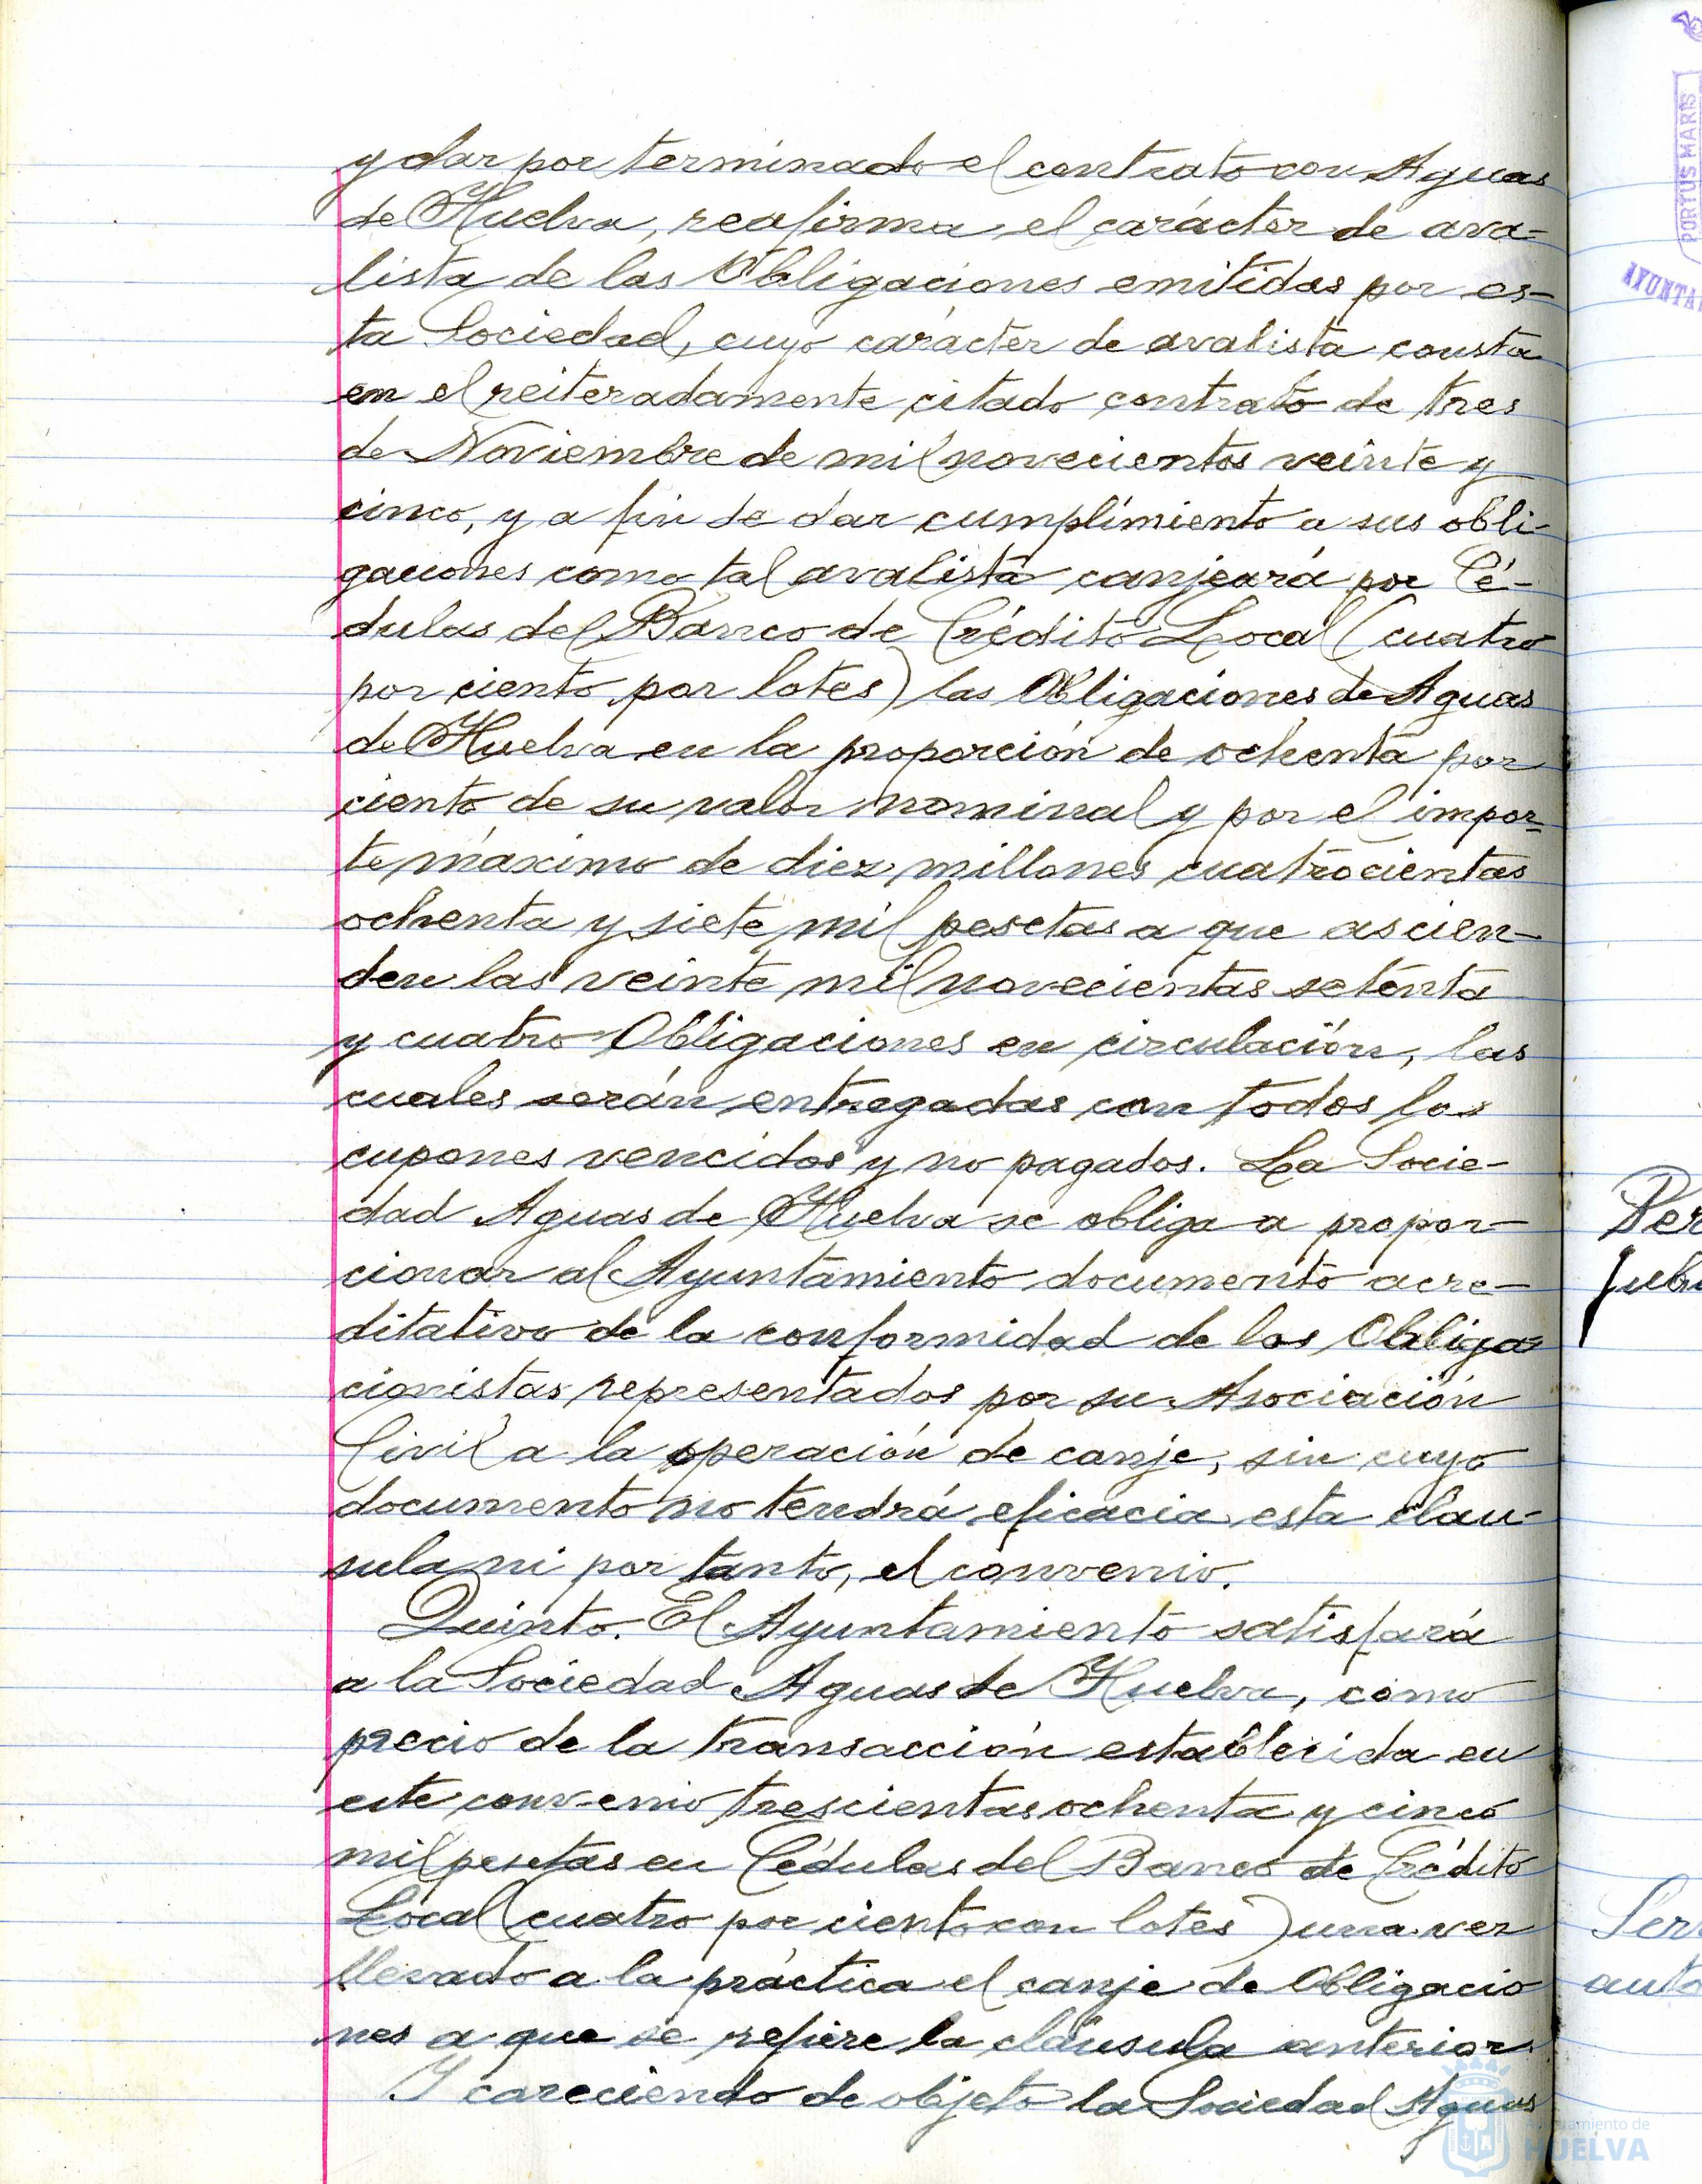 y dar por terminado el contrato con Aguas
de Huelva, reafirma el carácter de ava-
lista de las Obligaciones emitidas por es-
ta Sociedad, cuyo carácter de avalista consta
en el reiteradamente citado contrato de tres
de Noviembre de mil novecientos veinte y
cinco, y a fin de dar cumplimiento a sus obli-
gaciones como tal avalista canjeará por Cé-
dulas del Banco de Crédito Local (cuatro
por ciento por lotes) las Obligaciones de Aguas
de Huelva en la proporción de ochenta por
ciento de su valor nominal y por el impor-
te máximo de diez millones cuatrocientas
ochenta y siete mil pesetas a que ascien-
den las veinte mil novecientas setenta
y cuatro Obligaciones en circulación, las
cuales serán entregadas con todos los
cupones vencidos y no pagados. La Socie-
dad Aguas de Huelva se obliga a propor-
cionar al Ayuntamiento documento acre-
ditativo de la conformidad de los Obliga-
cionistas representados por su Asociación
Civil a la operación de canje, sin cuyo
documento no tendrá eficacia esta cláu-
sula ni por tanto, el convenio.
Quinto. El Ayuntamiento satisfará
a la Sociedad Aguas de Huelva, como
precio de la transacción establecida en
este convenio trescientas ochenta y cinco
mil pesetas en Cédulas del Banco de Crédito
Local (cuatro por ciento con lotes) una vez
llevado a la práctica el canje de Obligacio
nes a que se refiere la cláusula anterior.
Y careciendo de objeto la Sociedad Aguas
PORTUS MARIS
AYUNTA
Per
jubi
Ser
auto
Ayuntamiento de
HUELVA